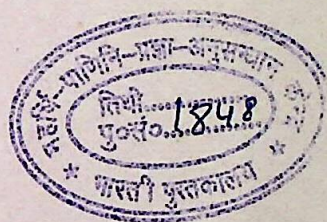 महर्षि-पाणिनि-प्रज्ञा-अनुसन्धान केन्द्र
तिथी..............
पु०सं०.1848........
* भारती पुस्तकालय *